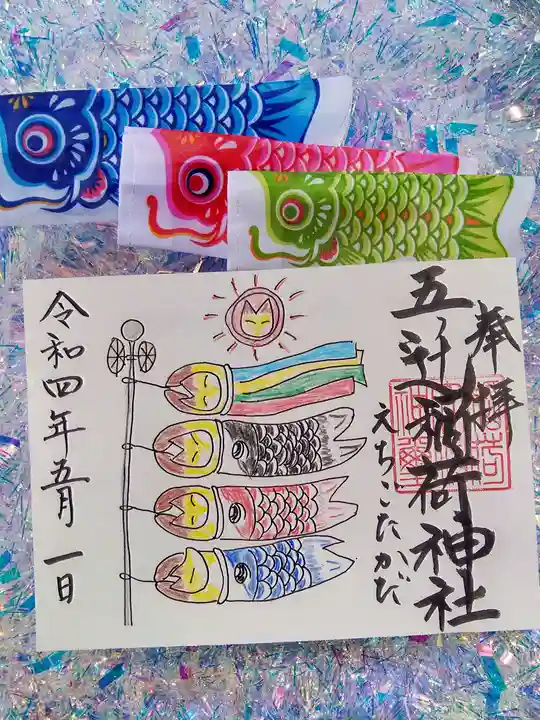 奉拝
五社稲荷神社
えちごたかだ
令和四年五月一日